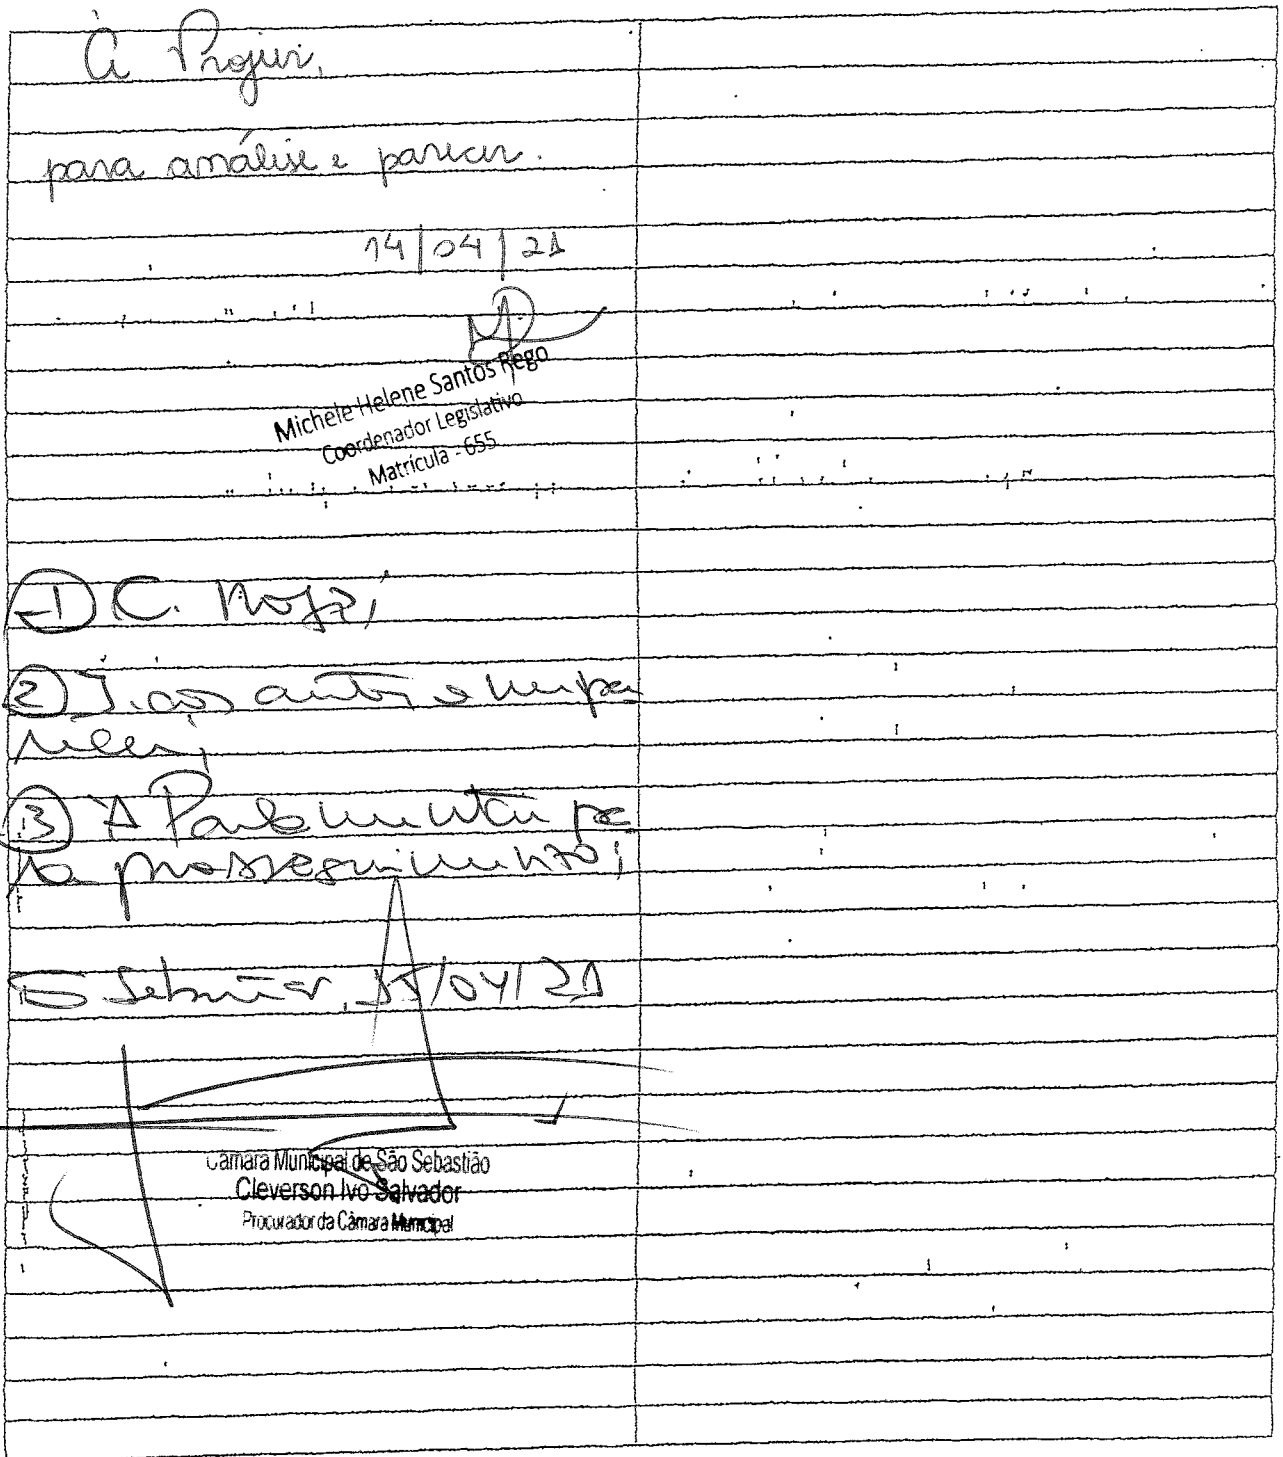 À Projur,
para análise e parecer.
14/04/21
Michele Helene Santos Rego
Coordenador Legislativo
Matrícula - 655
1) C. hoje;
2) J. aos autos
3) À Parlamentar pa
ra prosseguimento;
S Sebastião, 15/04/21
Câmara Municipal de São Sebastião
Cleverson Ivo Salvador
Procurador da Câmara Municipal